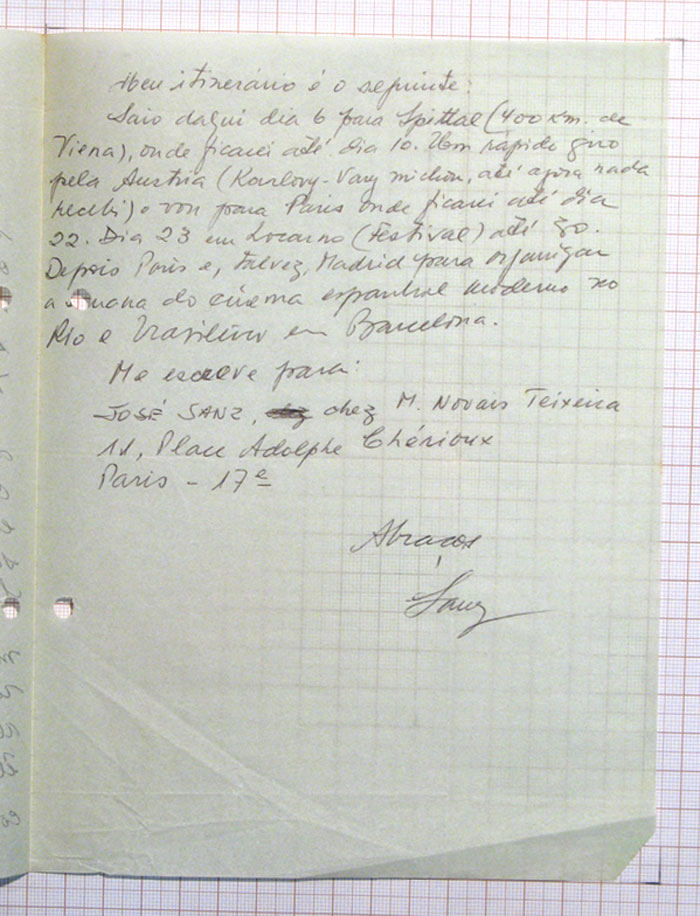 Meu itinerário é o seguinte:
Saio daqui dia 6 para Spittal (400 km. de
Viena), onde ficarei até dia 10. Um rápido giro
pela Austria (Karlovy-Vary michou, até agora nada
recebi) e vou para Paris onde ficarei até dia
22. Dia 23 em Locarno (Festival) até 30.
Depois Paris e, talvez, Madrid para organizar
a semana do cinema espanhol moderno no
Rio e brasileiro em Barcelona.
Me escreve para:
JOSÉ SANZ, chez M. Novais Teixeira
11, Place Adolphe Chérioux
Paris - 17e
Abraços
Sanz